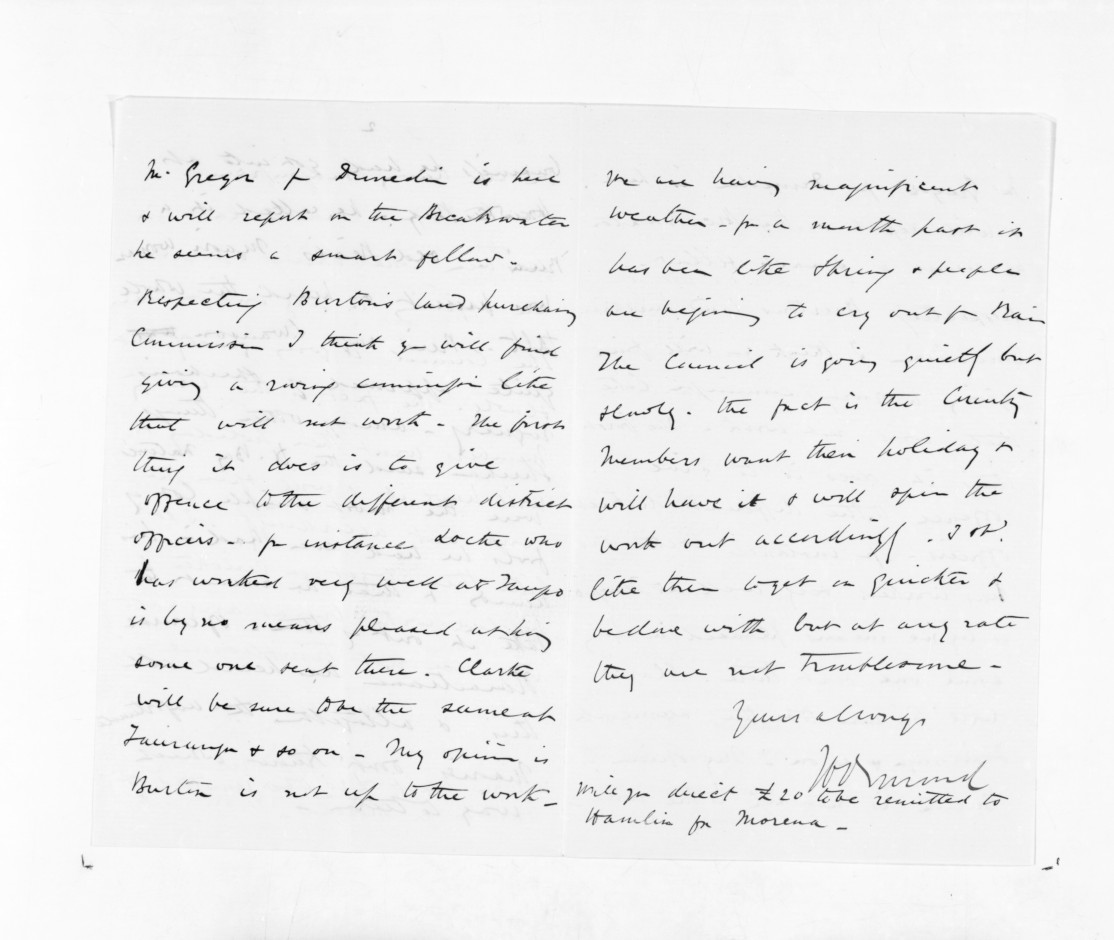 McGregor fr Dunedin is here
& will report on the Breakwater
he seems a smart fellow -
Respecting Burton's land purchasing
Commission I think you will find
giving a roving commission like
that will not work - The first
thing it does is to give
offence to the different district
officers - for instance Locke who
has worked very well at Taupo
is by no means pleased at his
some one sent there. Clarke
will be sure to be the same at
Tauranga & so on - My opinion is
Burton is not up to the work -
We are having magnificent
weather - for a month past it
has been like Spring & people
are begining to cry out for Rain
The Council is going quietly but
slowly. The fact is the County
Members want their holiday &
will have it & will spin the
work out accordingly. I shd.
like them to get on quicker &
be done with but at any rate
they are not troublesome -
Yours always
JD Ormond
Will you direct £20 to be remitted to
Hamlin for Morena -
2